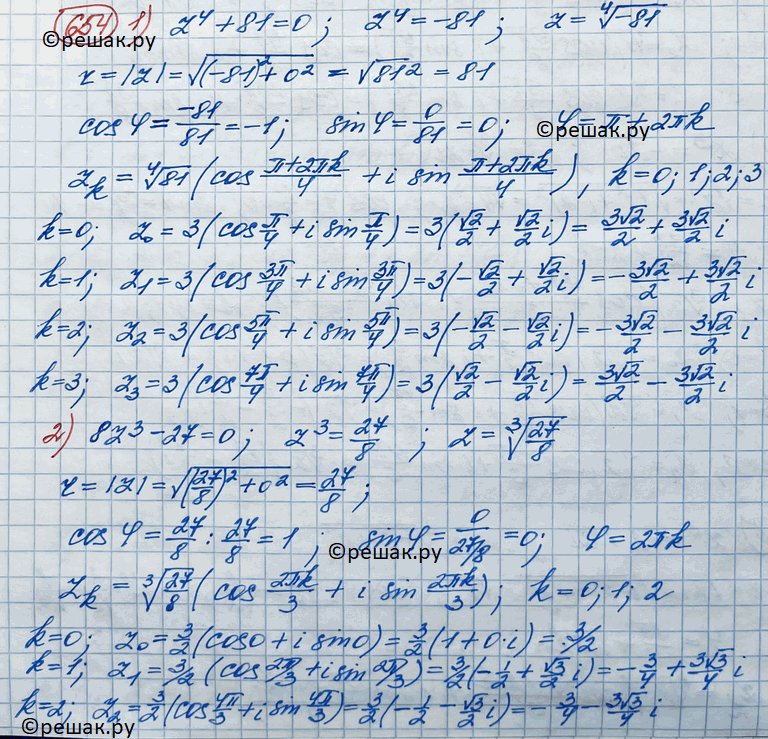 654 1) z⁴ + 81 = 0; z⁴ = -81; z = ⁴√-81
©решак.ру
r = |z| = √((-81)² + 0²) = √81² = 81
cos φ = -81/81 = -1; sin φ = 0/81 = 0; φ = π + 2πk
©решак.ру
z_k = ⁴√81 (cos (π+2πk)/4 + i sin (π+2πk)/4), k = 0; 1; 2; 3
k=0; z₀ = 3(cos π/4 + i sin π/4) = 3(√2/2 + √2/2 i) = 3√2/2 + 3√2/2 i
k=1; z₁ = 3(cos 3π/4 + i sin 3π/4) = 3(-√2/2 + √2/2 i) = -3√2/2 + 3√2/2 i
k=2; z₂ = 3(cos 5π/4 + i sin 5π/4) = 3(-√2/2 - √2/2 i) = -3√2/2 - 3√2/2 i
k=3; z₃ = 3(cos 7π/4 + i sin 7π/4) = 3(√2/2 - √2/2 i) = 3√2/2 - 3√2/2 i
2) 8z³ - 27 = 0; z³ = 27/8; z = ³√27/8
r = |z| = √((27/8)² + 0²) = 27/8;
cos φ = 27/8 : 27/8 = 1; sin φ = 0/27/8 = 0; φ = 2πk
©решак.ру
z_k = ³√27/8 (cos 2πk/3 + i sin 2πk/3); k = 0; 1; 2
k=0; z₀ = 3/2 (cos 0 + i sin 0) = 3/2 (1 + 0·i) = 3/2
k=1; z₁ = 3/2 (cos 2π/3 + i sin 2π/3) = 3/2 (-1/2 + √3/2 i) = -3/4 + 3√3/4 i
k=2; z₂ = 3/2 (cos 4π/3 + i sin 4π/3) = 3/2 (-1/2 - √3/2 i) = -3/4 - 3√3/4 i
©решак.ру